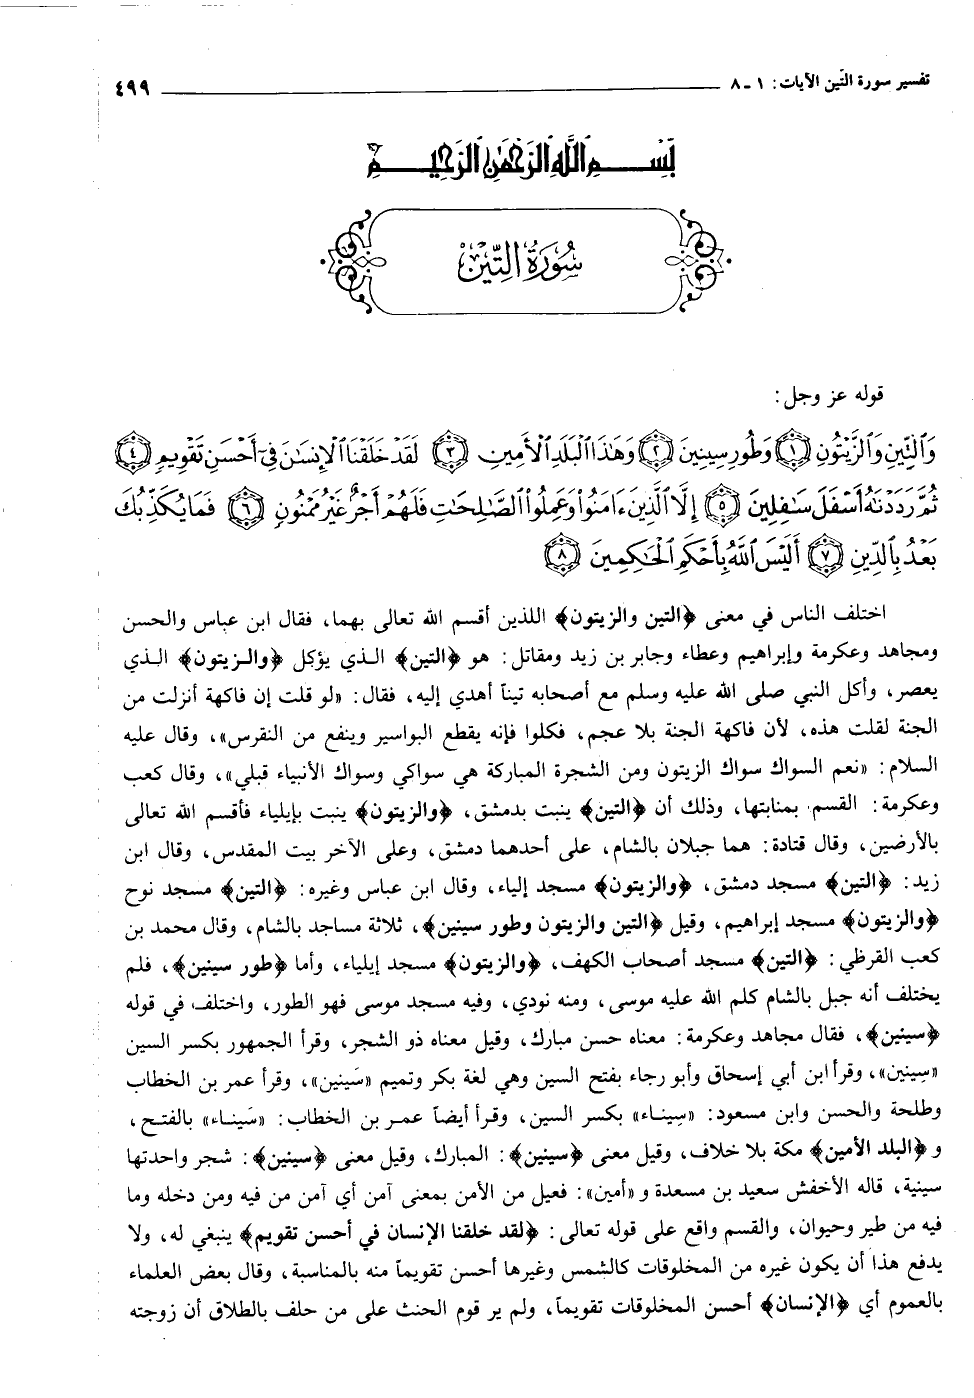 تفسير سورة التّين الآيات: ١ - ٨ ٤٩٩
بِسْمِ اللَّهِ الرَّحْمَٰنِ الرَّحِيمِ
سُورَةُ التِّينِ
قوله عز وجل:
وَٱلتِّينِ وَٱلزَّيْتُونِ ﴿١﴾ وَطُورِ سِينِينَ ﴿٢﴾ وَهَٰذَا ٱلْبَلَدِ ٱلْأَمِينِ ﴿٣﴾ لَقَدْ خَلَقْنَا ٱلْإِنسَٰنَ فِىٓ أَحْسَنِ تَقْوِيمٍ ﴿٤﴾
ثُمَّ رَدَدْنَٰهُ أَسْفَلَ سَٰفِلِينَ ﴿٥﴾ إِلَّا ٱلَّذِينَ ءَامَنُوا۟ وَعَمِلُوا۟ ٱلصَّٰلِحَٰتِ فَلَهُمْ أَجْرٌ غَيْرُ مَمْنُونٍ ﴿٦﴾ فَمَا يُكَذِّبُكَ
بَعْدُ بِٱلدِّينِ ﴿٧﴾ أَلَيْسَ ٱللَّهُ بِأَحْكَمِ ٱلْحَٰكِمِينَ ﴿٨﴾
اختلف الناس في معنى ﴿التين والزيتون﴾ اللذين أقسم الله تعالى بهما، فقال ابن عباس والحسن
ومجاهد وعكرمة وإبراهيم وعطاء وجابر بن زيد ومقاتل: هو ﴿التين﴾ الذي يؤكل ﴿والزيتون﴾ الذي
يعصر، وأكل النبي صلى الله عليه وسلم مع أصحابه تيناً أهدي إليه، فقال: «لو قلت إن فاكهة أنزلت من
الجنة لقلت هذه، لأن فاكهة الجنة بلا عجم، فكلوا فإنه يقطع البواسير وينفع من النقرس»، وقال عليه
السلام: «نعم السواك سواك الزيتون ومن الشجرة المباركة هي سواكي وسواك الأنبياء قبلي»، وقال كعب
وعكرمة: القسم بمنابتها، وذلك أن ﴿التين﴾ ينبت بدمشق، ﴿والزيتون﴾ ينبت بإيلياء فأقسم الله تعالى
بالأرضين، وقال قتادة: هما جبلان بالشام، على أحدهما دمشق، وعلى الآخر بيت المقدس، وقال ابن
زيد: ﴿التين﴾ مسجد دمشق، ﴿والزيتون﴾ مسجد إلياء، وقال ابن عباس وغيره: ﴿التين﴾ مسجد نوح
﴿والزيتون﴾ مسجد إبراهيم، وقيل ﴿التين والزيتون وطور سينين﴾، ثلاثة مساجد بالشام، وقال محمد بن
كعب القرظي: ﴿التين﴾ مسجد أصحاب الكهف، ﴿والزيتون﴾ مسجد إيلياء، وأما ﴿طور سينين﴾، فلم
يختلف أنه جبل بالشام كلم الله عليه موسى، ومنه نودي، وفيه مسجد موسى فهو الطور، واختلف في قوله
﴿سينين﴾، فقال مجاهد وعكرمة: معناه حسن مبارك، وقيل معناه ذو الشجر، وقرأ الجمهور بكسر السين
«سِينين»، وقرأ ابن أبي إسحاق وأبو رجاء بفتح السين وهي لغة بكر وتميم «سَينين»، وقرأ عمر بن الخطاب
وطلحة والحسن وابن مسعود: «سِيناء» بكسر السين، وقرأ أيضاً عمر بن الخطاب: «سَيناء» بالفتح،
و ﴿البلد الأمين﴾ مكة بلا خلاف، وقيل معنى ﴿سينين﴾: المبارك، وقيل معنى ﴿سينين﴾: شجر واحدتها
سينية، قاله الأخفش سعيد بن مسعدة و «أمين»: فعيل من الأمن بمعنى آمن أي آمن من فيه ومن دخله وما
فيه من طير وحيوان، والقسم واقع على قوله تعالى: ﴿لقد خلقنا الإنسان في أحسن تقويم﴾ ينبغي له، ولا
يدفع هذا أن يكون غيره من المخلوقات كالشمس وغيرها أحسن تقويماً منه بالمناسبة، وقال بعض العلماء
بالعموم أي ﴿الإنسان﴾ أحسن المخلوقات تقويماً، ولم ير قوم الحنث على من حلف بالطلاق أن زوجته